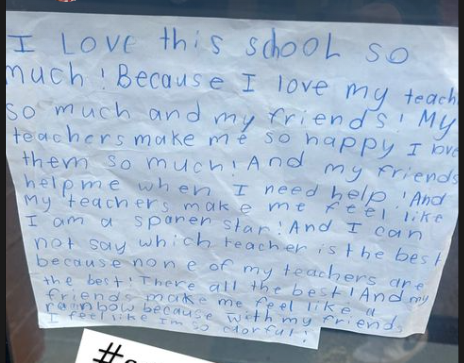 I LOVE this school so
much! Because I love my teach
so much and my friends! My
teachers make me so happy I love
them so much! And my friends
help me when I need help! And
My teachers make me feel like
I am a spanen star! And I can
not say which teacher is the best
because none of my teachers are
the best! There all the best! And my
friends make me feel like a
rainbow because with my friends
I feel like I'm so colorful!